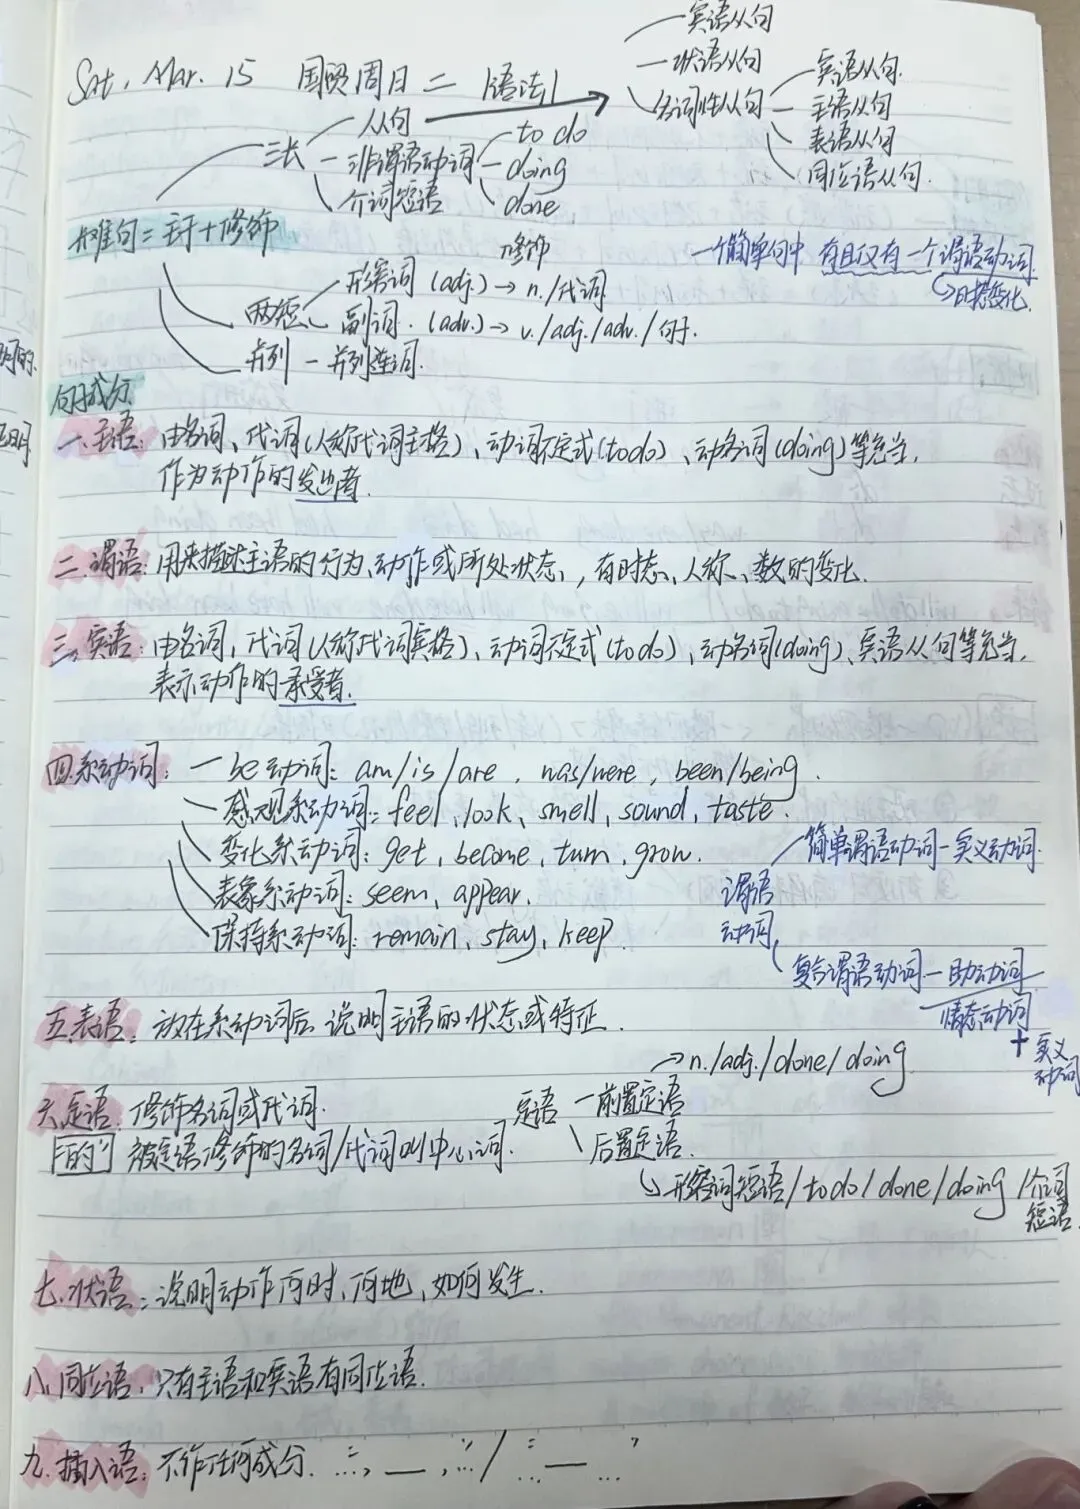 宾语从句
状语从句
Sat, Mar. 15 国贸周日二 |语法|
名词性从句
宾语从句.
主语从句
表语从句
同位语从句.
三长
从句
非谓语动词
介词短语
to do
doing
done
难句 = 主干 + 修饰
一个简单句中 有且仅有一个谓语动词
时态变化
修饰
两短
形容词 (adj.) → n./代词
副词. (adv.) → v./adj./adv./句子.
并列 — 并列连词.
句子成分
一. 主语: 由名词、代词(人称代词主格)、动词不定式(to do)、动名词(doing)等充当,
作为动作的发出者.
二. 谓语: 用来描述主语的行为、动作或所处状态, 有时态、人称、数的变化.
三. 宾语: 由名词, 代词(人称代词宾格)、动词不定式(to do)、动名词(doing)、宾语从句等充当,
表示动作的承受者.
四. 系动词: 一 be动词: am/is/are, was/were, been/being.
感观系动词: feel, look, smell, sound, taste.
变化系动词: get, become, turn, grow.
表象系动词: seem, appear.
保持系动词: remain, stay, keep.
谓语动词
简单谓语动词 — 实义动词.
复合谓语动词 — 助动词
情态动词
+ 实义动词
五. 表语: 放在系动词后 说明主语的状态或特征.
六. 定语: 修饰名词或代词.
「的」 被定语修饰的名词/代词叫中心词.
定语
→ n./adj./done/doing
前置定语
后置定语.
↳ 形容词短语/to do/done/doing/介词短语.
七. 状语: 说明动作何时、何地、如何发生.
八. 同位语: 只有主语和宾语有同位语.
九. 插入语: 不作任何成分. ..., —, .../ ... — ...